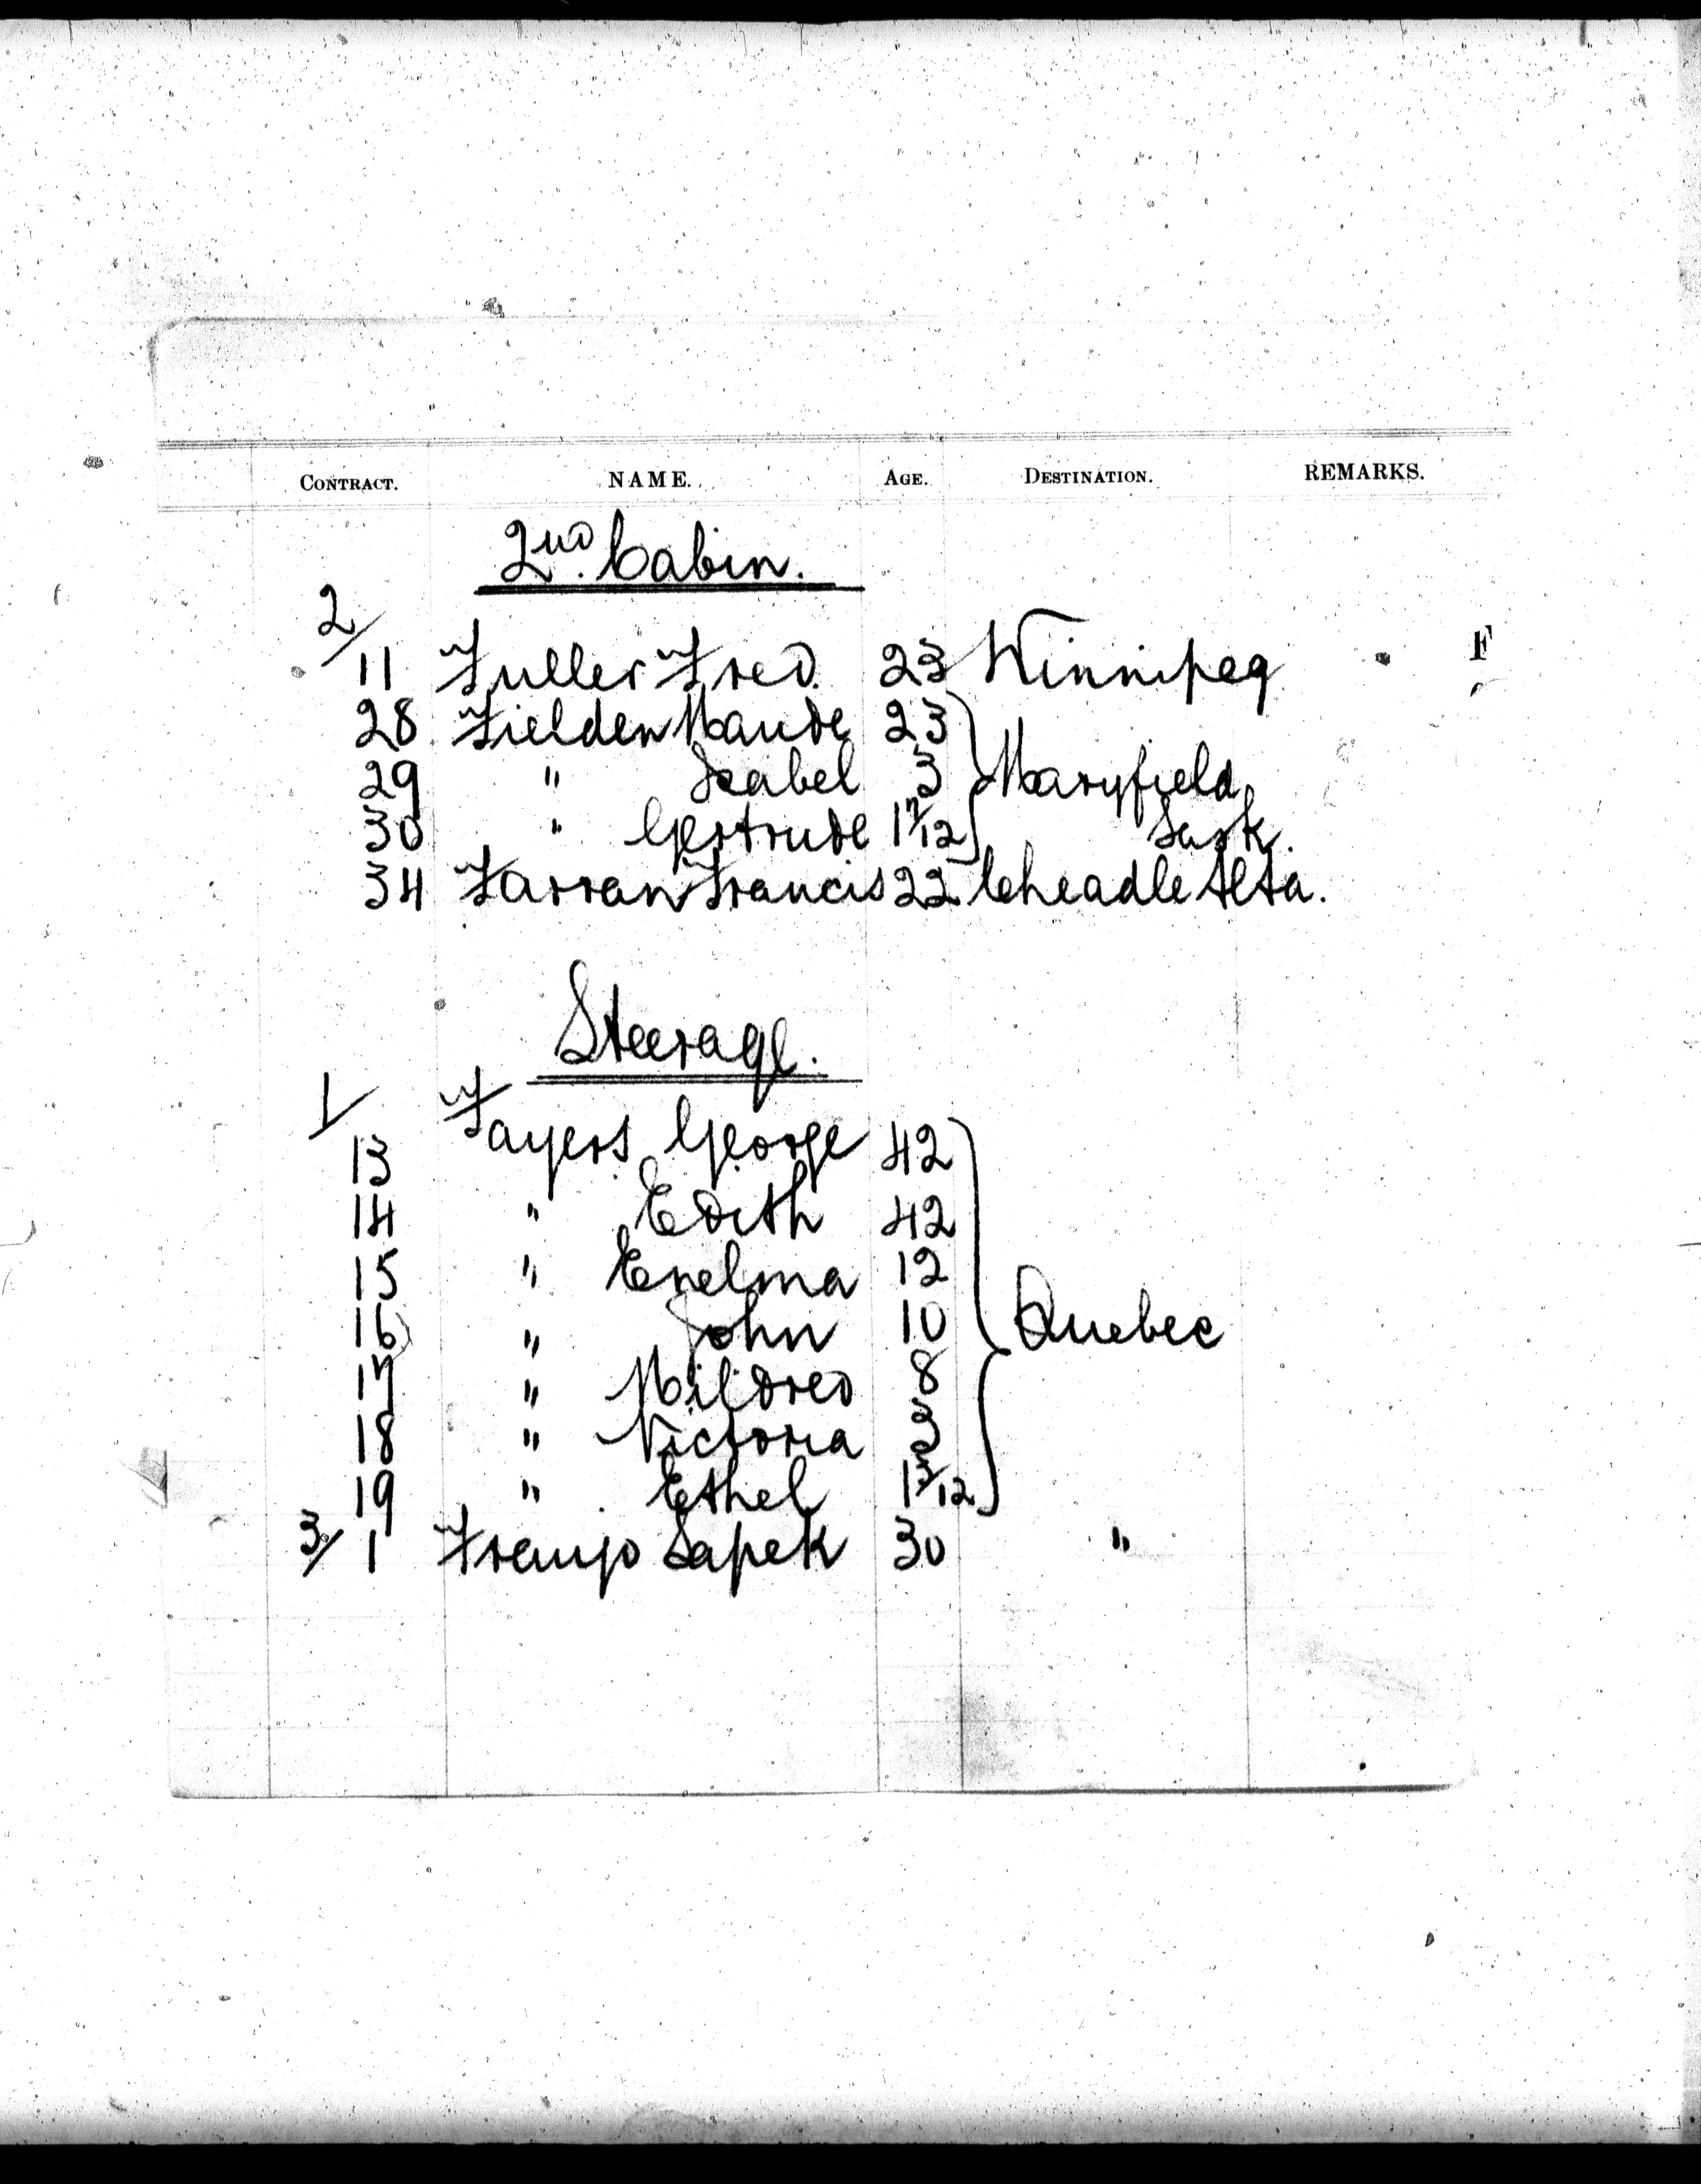 CONTRACT. NAME. AGE. DESTINATION. REMARKS.
2nd. Cabin.
2/
11 Fuller Fred. 23 Winnipeg F
28 Fielden Maude 23
29 " Isabel 3 Maryfield
30 " Gertrude 1 7/12 Sask.
34 Farran Francis 22 Cheadle Alta.
Steerage.
1/
13 Fayers George 42
14 " Edith 42
15 " Enelma 12
16 " John 10 Quebec
17 " Mildred 8
18 " Victoria 3
19 " Ethel 1 3/12
3/ 1 Franjo Sapek 30 "